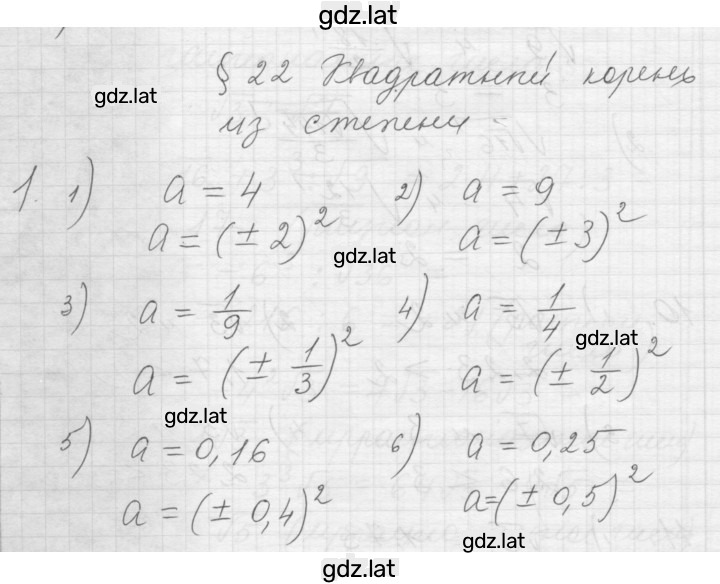 gdz.lat
§ 22 Квадратный корень
gdz.lat
из степени
1. 1) a = 4 2) a = 9
a = (± 2)² a = (± 3)²
gdz.lat
3) a = 1/9 4) a = 1/4
gdz.lat
a = (± 1/3)² a = (± 1/2)²
gdz.lat
5) a = 0,16 6) a = 0,25
a = (± 0,4)² a = (± 0,5)²
gdz.lat
gdz.lat